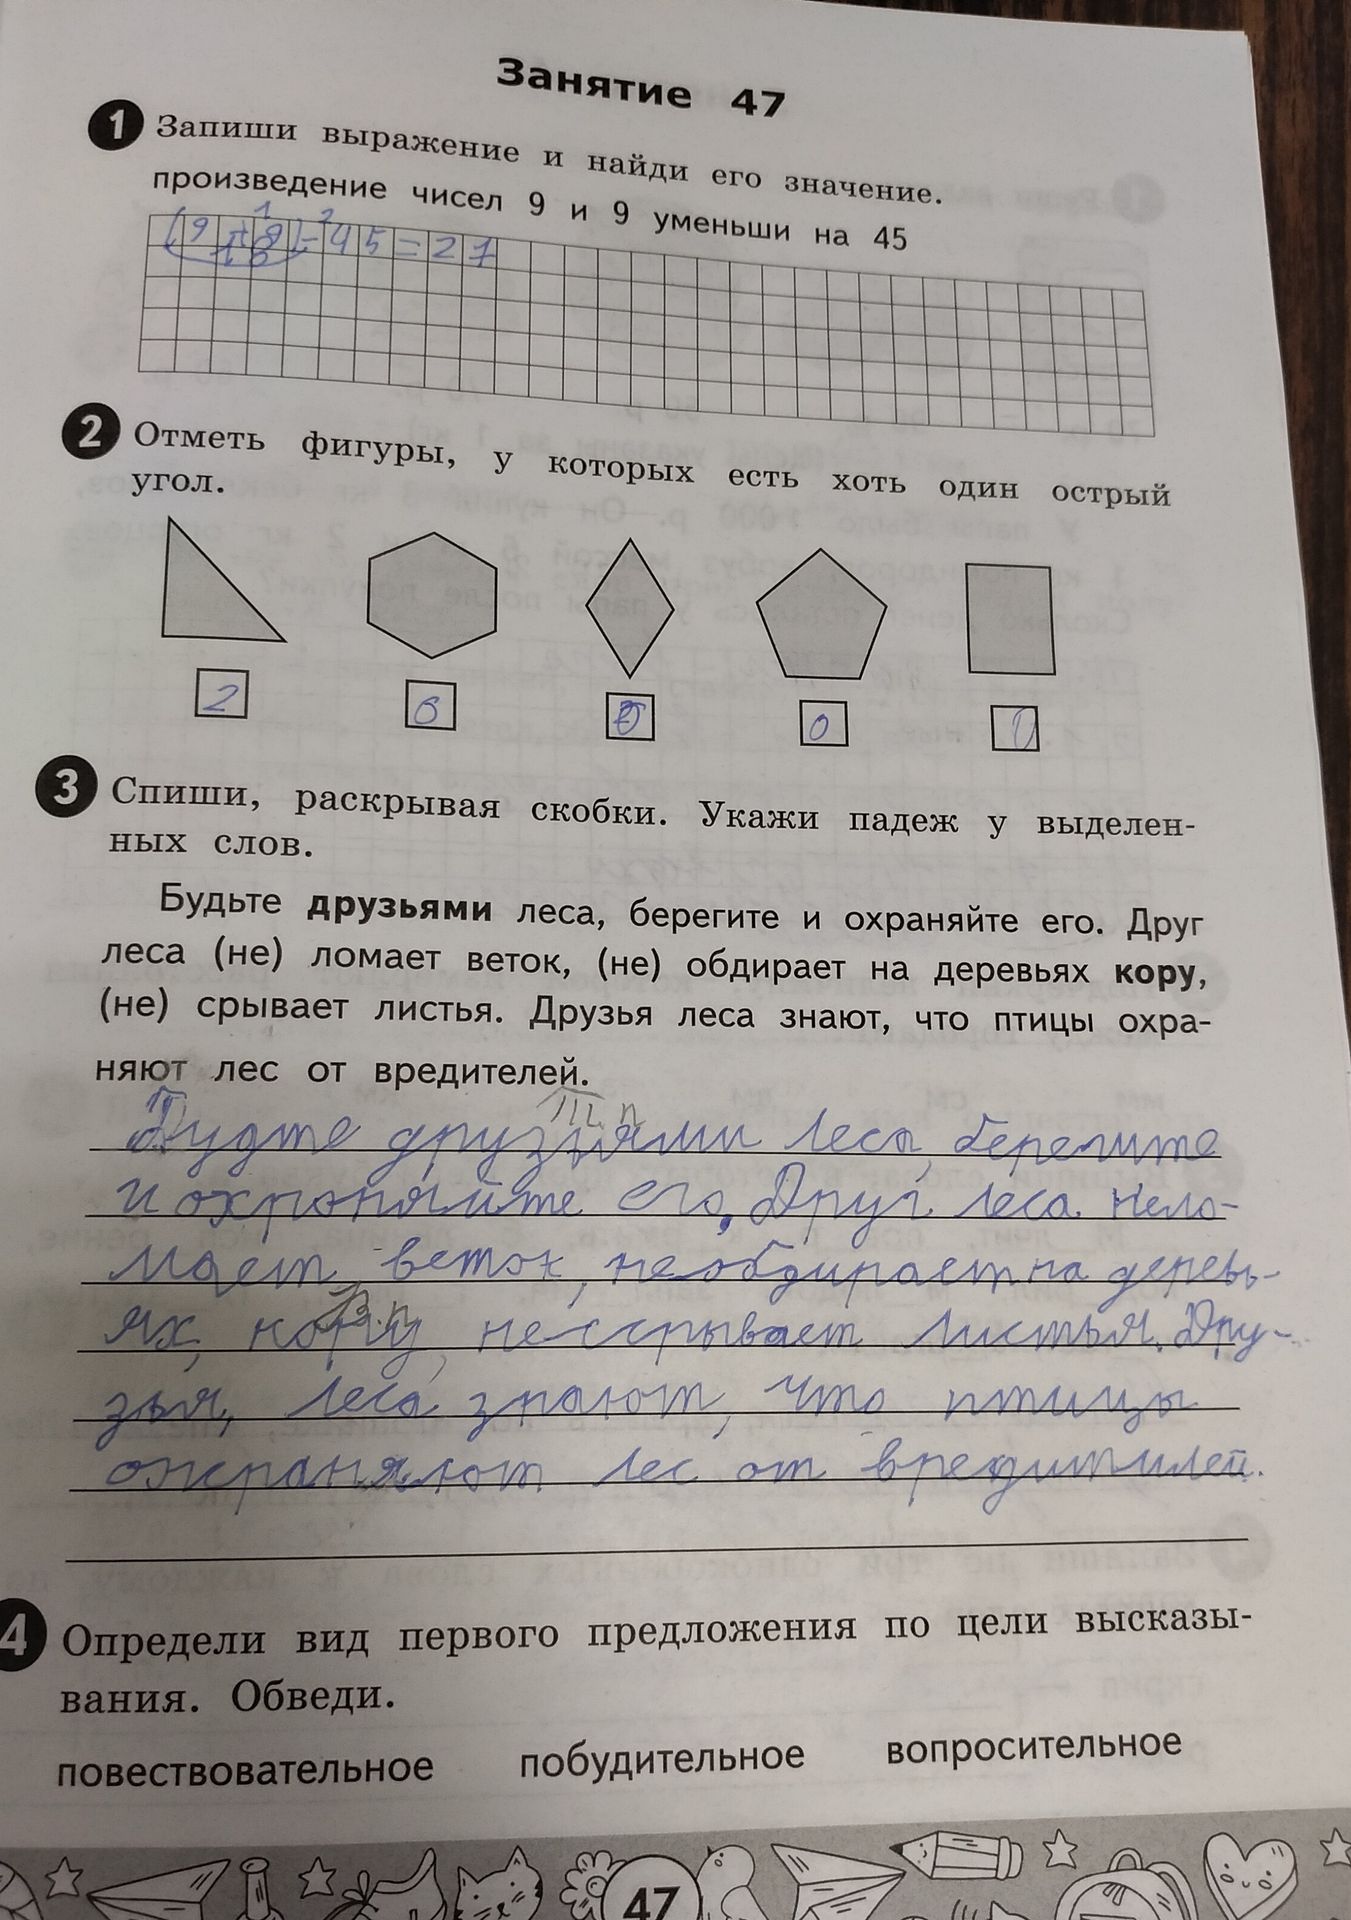 Занятие 47
1 Запиши выражение и найди его значение.
произведение чисел 9 и 9 уменьши на 45
1 2
(9+9)-45=27
18
2 Отметь фигуры, у которых есть хоть один острый
угол.
2 0 0
3 Спиши, раскрывая скобки. Укажи падеж у выделен-
ных слов.
Будьте друзьями леса, берегите и охраняйте его. Друг
леса (не) ломает веток, (не) обдирает на деревьях кору,
(не) срывает листья. Друзья леса знают, что птицы охра-
няют лес от вредителей.
Т.п
Будте друзьями леса, берегите
и охроняйте его. Друг леса нело-
мает веток, необдирает на деревь-
В.п
ях, кору, нессрывает листья. Дру-
зья, леса знают, что птицы
охраняют лес от вредитилей.
4 Определи вид первого предложения по цели высказы-
вания. Обведи.
повествовательное побудительное вопросительное
47